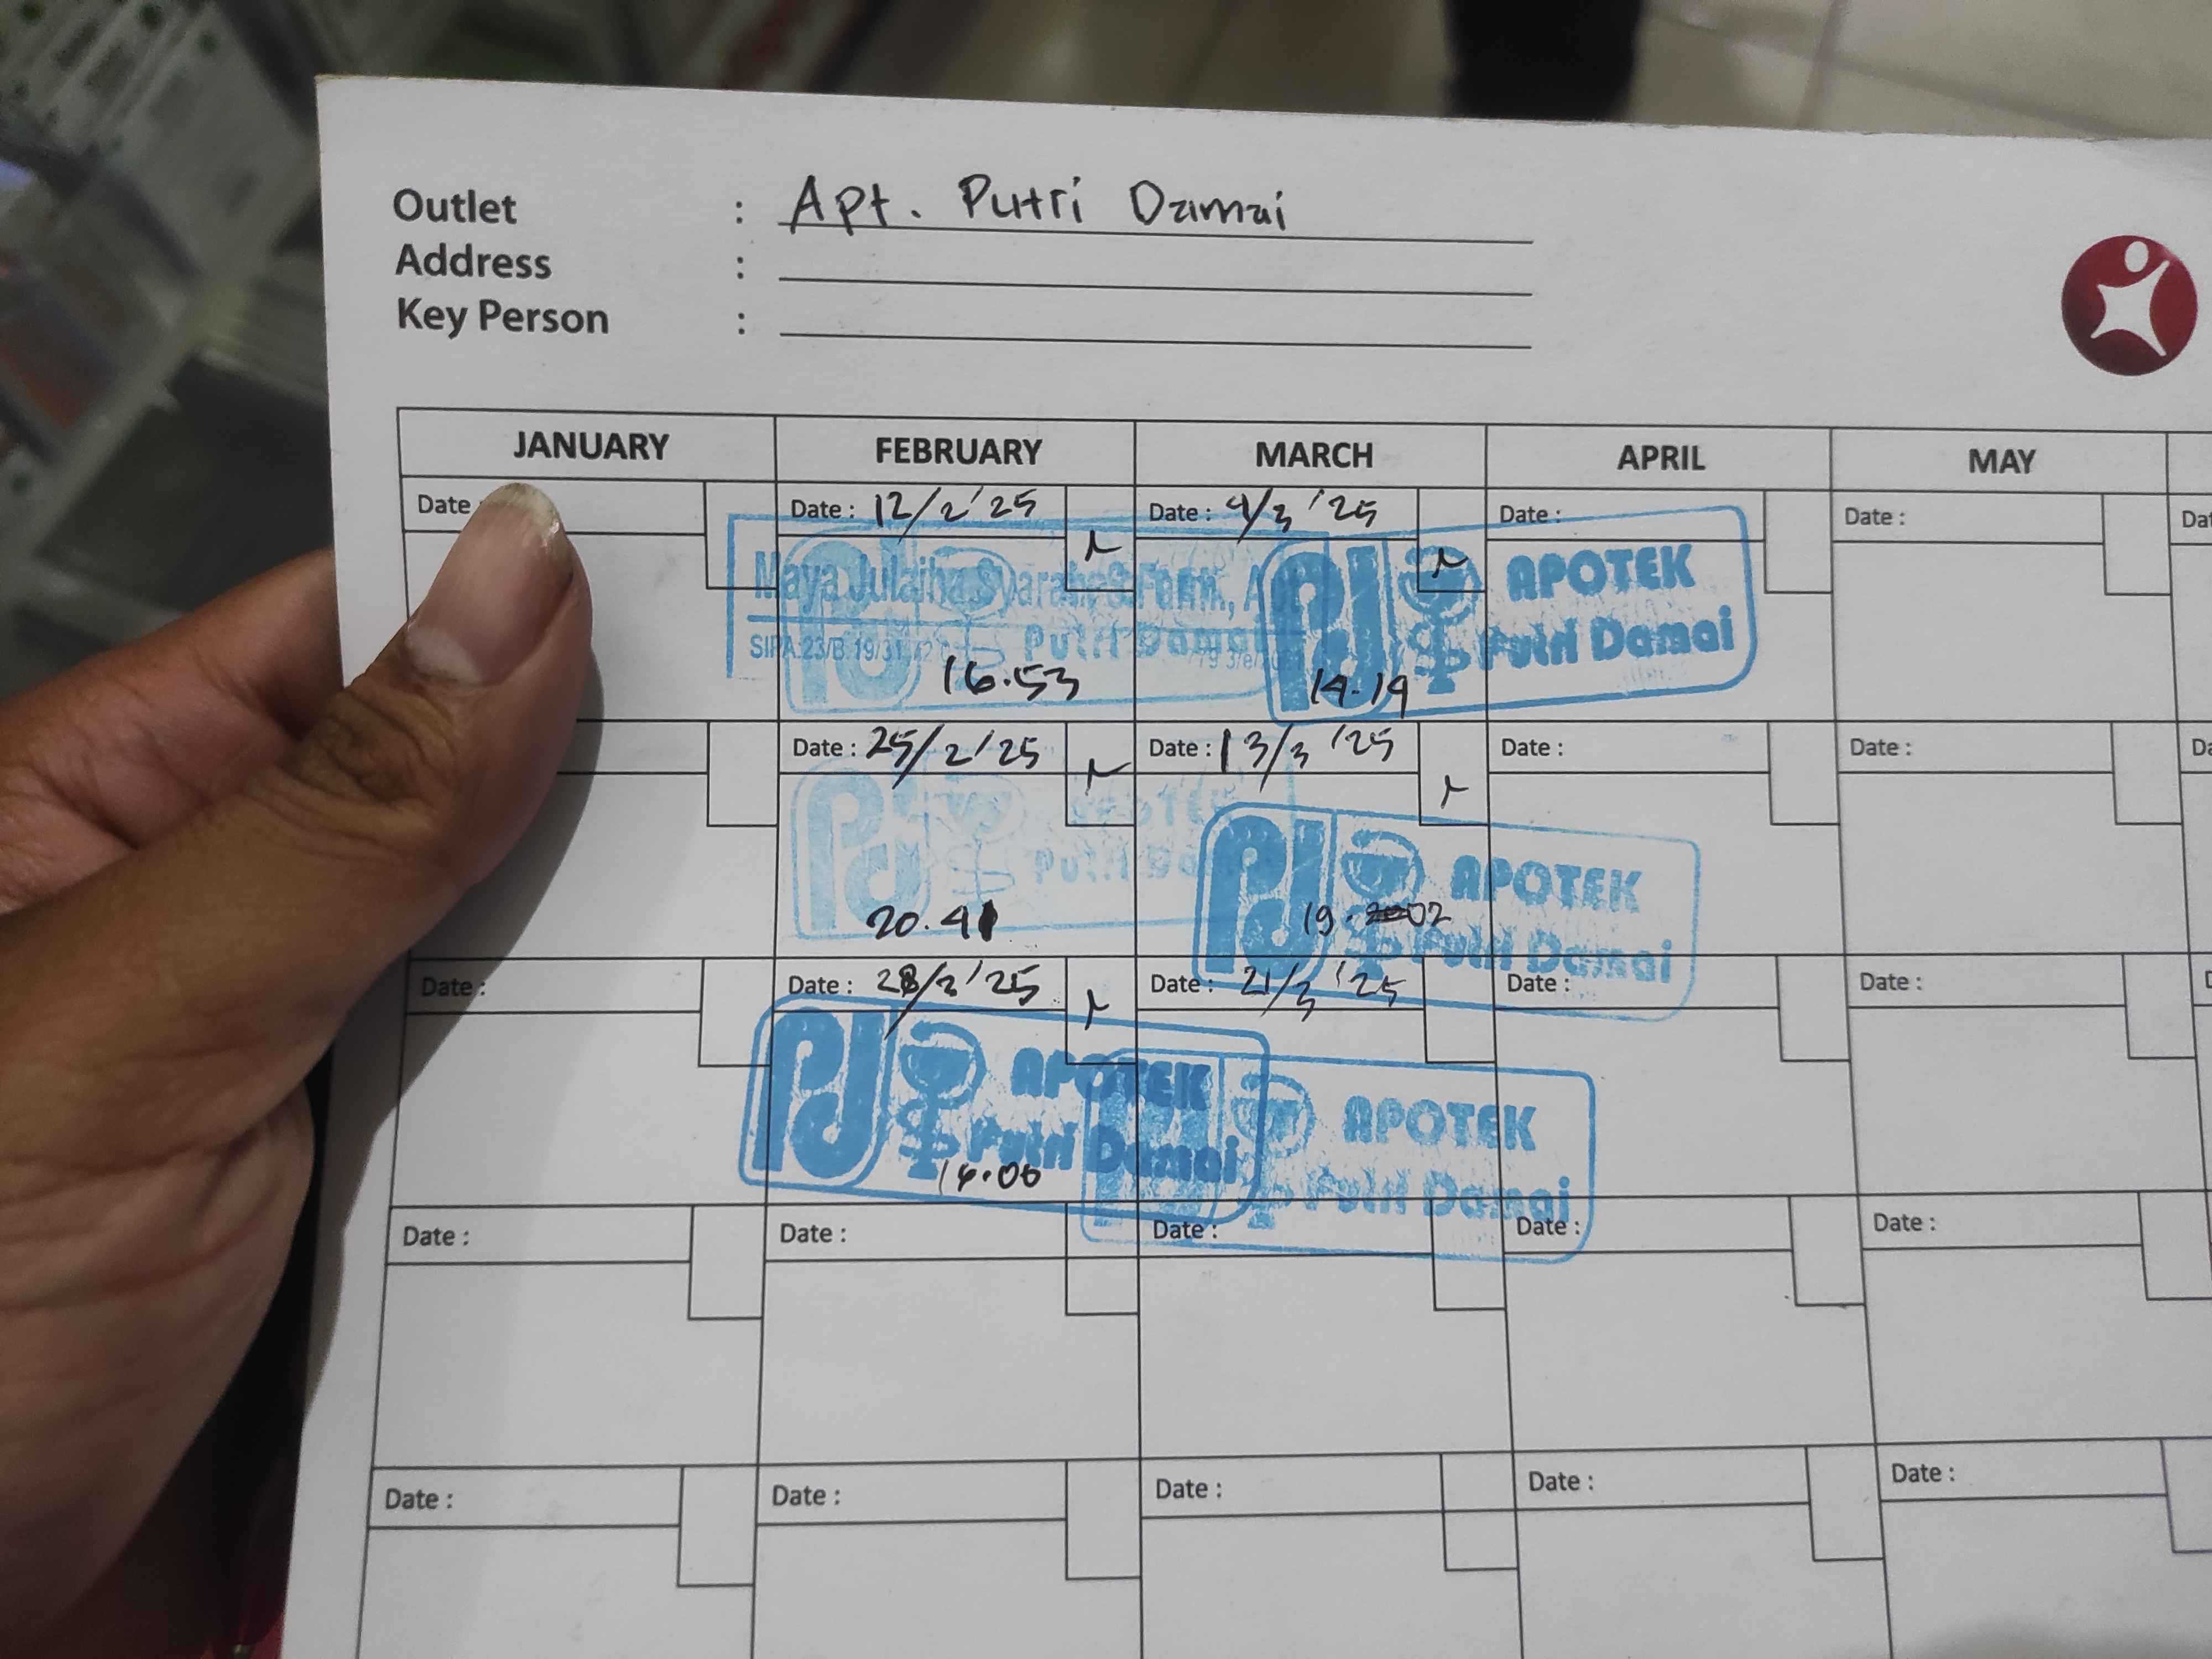 Outlet : Apt. Putri Damai
Address :
Key Person :
JANUARY FEBRUARY MARCH APRIL MAY
Date Date : 12/2 '25 Date : 4/3 '25 Date : Date : Dat
Maya Julaiha Syarah, S.Farm, Apt
APOTEK
SIPA.23/B.19/31. Putri Damai Putri Damai
16.53 14.19
Date : 25/2 '25 Date : 13/3 '25 Date : Date : Da
APOTEK APOTEK
Putri Da Putri Damai
20.41 19. 02
Date : Date : 28/2 '25 Date : 21/3 '25 Date : Date : D
APOTEK APOTEK
Putri Damai Putri Damai
Date : Date : Date : Date : Date :
Date : Date : Date : Date : Date :